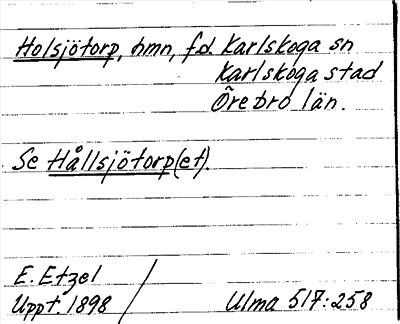 Holsjötorp, hmn, f.d. Karlskoga sn
Karlskoga stad
Örebro län.
Se Hållsjötorp(et).
E. Etzel
Uppt. 1898
Ulma 517:258